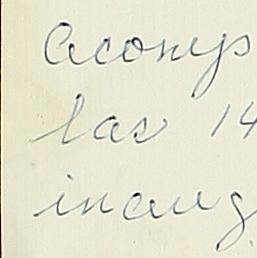 acomp
las 14
inaug